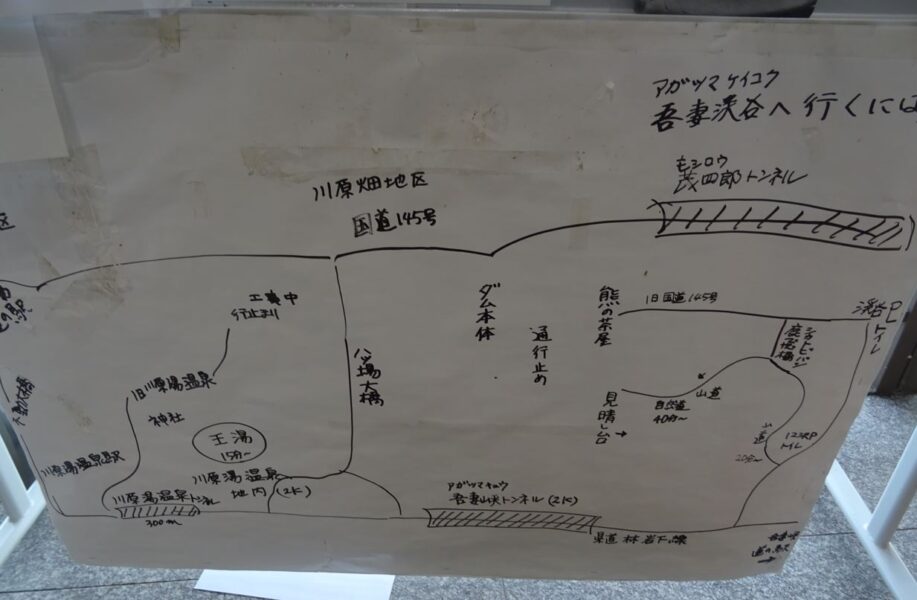 アガツマケイコク
吾妻渓谷へ行くには
モシロウ
茂四郎トンネル
川原畑地区
国道145号
区
工事中
行止まり
ダム本体
通行止め
熊の茶屋
旧国道145号
渓谷P
トイレ
シカトビバシ
鹿飛橋
八ッ場大橋
不動大橋
旧川原湯温泉
神社
王湯
15分～
山道
自然道
40分～
見晴し台
→
山道
トイレ
川原湯温泉駅
川原湯温泉
地内 (2K)
川原湯温泉トンネル
300m
吾妻峡トンネル(2K)
県道林岩下線
→